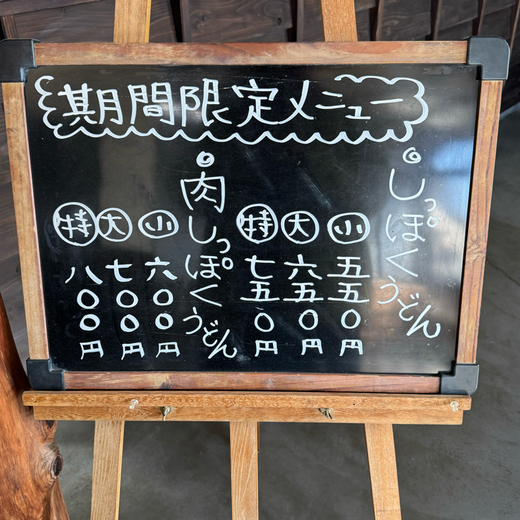 期間限定メニュー
。しっぽくうどん
小 五五〇円
大 六五〇円
特 七五〇円
。肉しっぽくうどん
小 六〇〇円
大 七〇〇円
特 八〇〇円